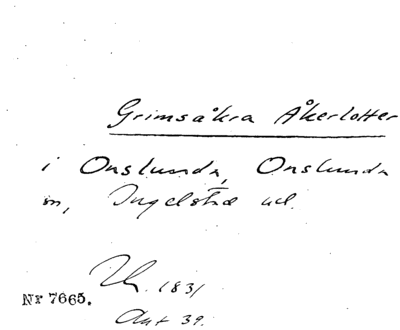 Grimsåkra Åkerlotter
i Onslunda, Onslunda
sn, Ingelstad hd.
Th. 1831
Nr 7665.
Ant 39.